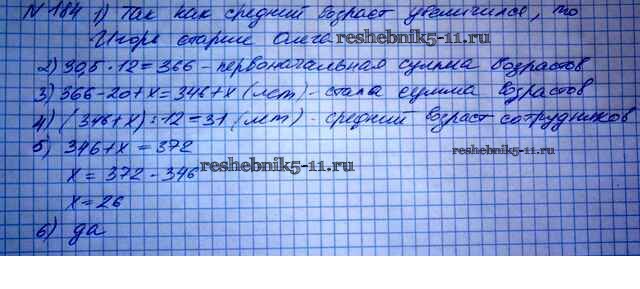 N 184 1) Так как средний возраст увеличился, то
Игорь старше Олега
reshebnik5-11.ru
2) 30,5 · 12 = 366 - первоначальная сумма возрастов
3) 366 - 20 + x = 346 + x (лет) - стала сумма возрастов
4) (346 + x) : 12 = 31 (лет) - средний возраст сотрудников
5) 346 + x = 372
reshebnik5-11.ru
reshebnik5-11.ru
x = 372 - 346
x = 26
6) да